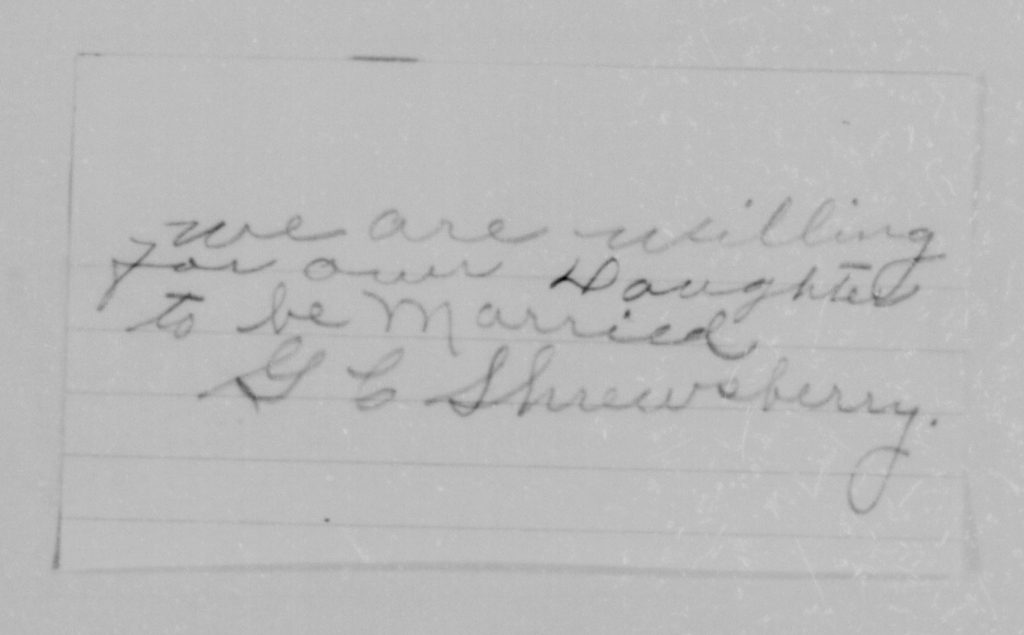 we are willing
for our Daughter
to be Married
G C Shrewsberry.